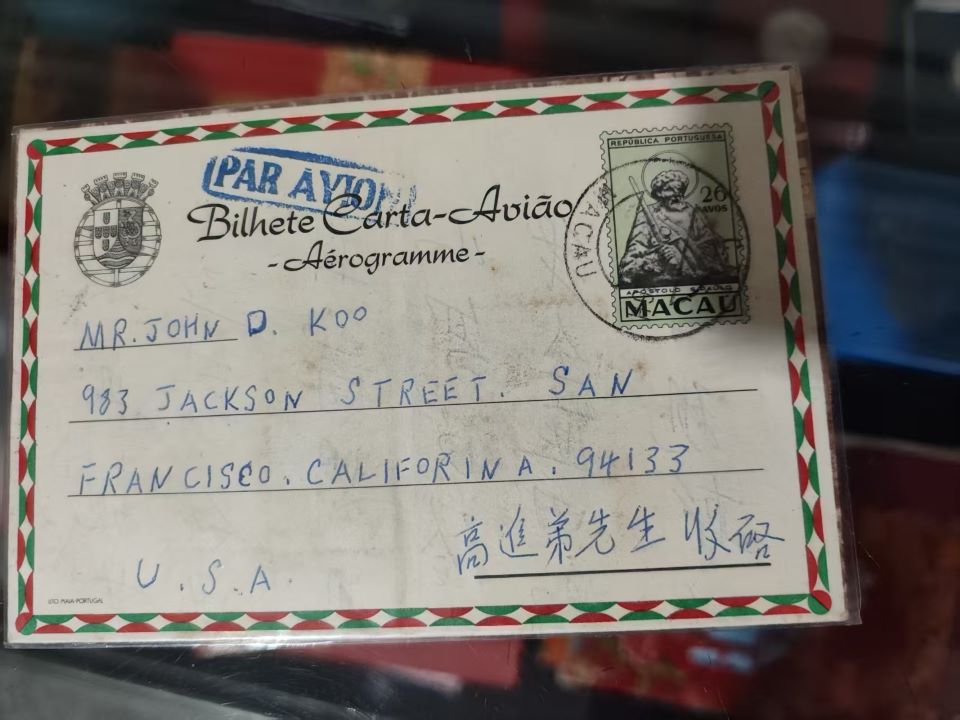 PAR AVION
Bilhete Carta-Avião
-Aérogramme-
REPÚBLICA PORTUGUESA
20
AVOS
APÓSTOLO S. PAULO
MACAU
MACAU
MR. JOHN D. KOO
983 JACKSON STREET. SAN
FRANCISCO. CALIFORINA. 94133
高進弟先生 收啓
U.S.A.
LITO MAIA-PORTUGAL